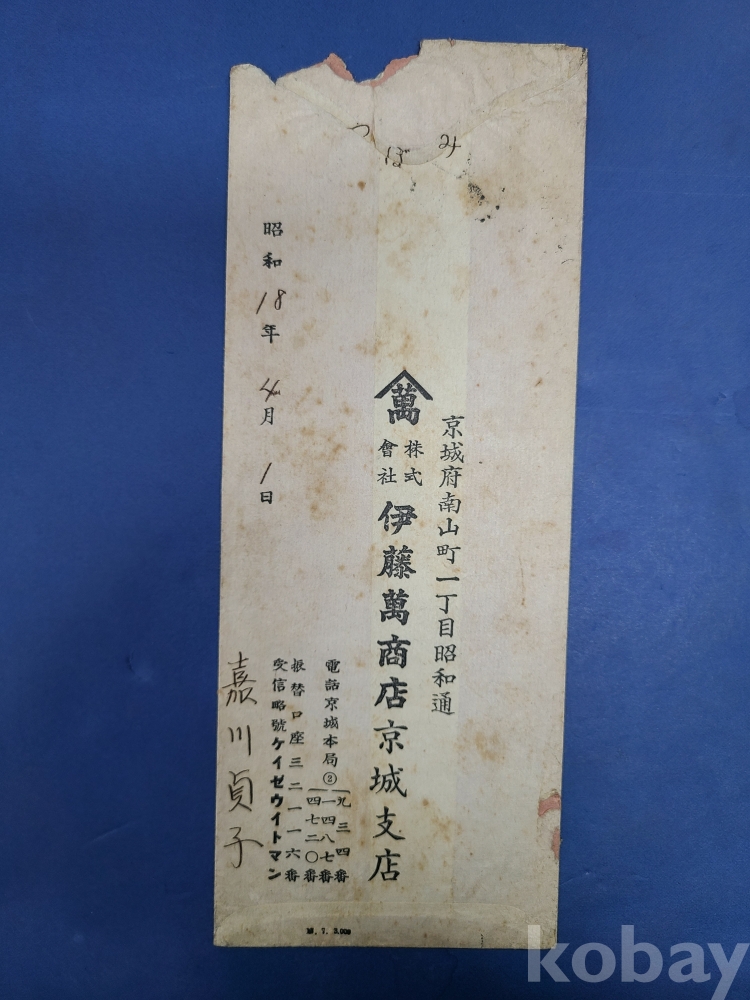 つぼみ
京城府南山町一丁目昭和通
萬
株式會社
伊藤萬商店京城支店
電話京城本局②
一九三四番
一四八七番
四七二〇番
振替口座三二一一六番
受信略號ケイゼウイトマン
昭和18年4月1日
嘉川貞子
kobay